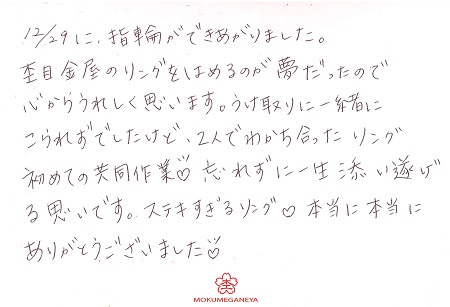 12/29に、指輪ができあがりました。
杢目金屋のリングをはめるのが夢だったので
心からうれしく思います。うけ取りに一緒に
こられずでしたけど、2人でわかち合ったリング
初めての共同作業♡ 忘れずに一生添い遂げ
る思いです。ステキすぎるリング♡ 本当に本当に
ありがとうございました♡
MOKUMEGANEYA